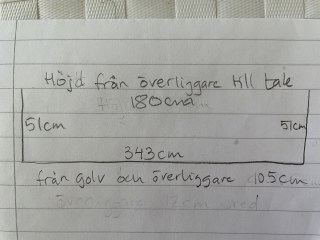 Höjd från överliggare till tak
180cm
51cm
51cm
343cm
från golv och överliggare 105cm